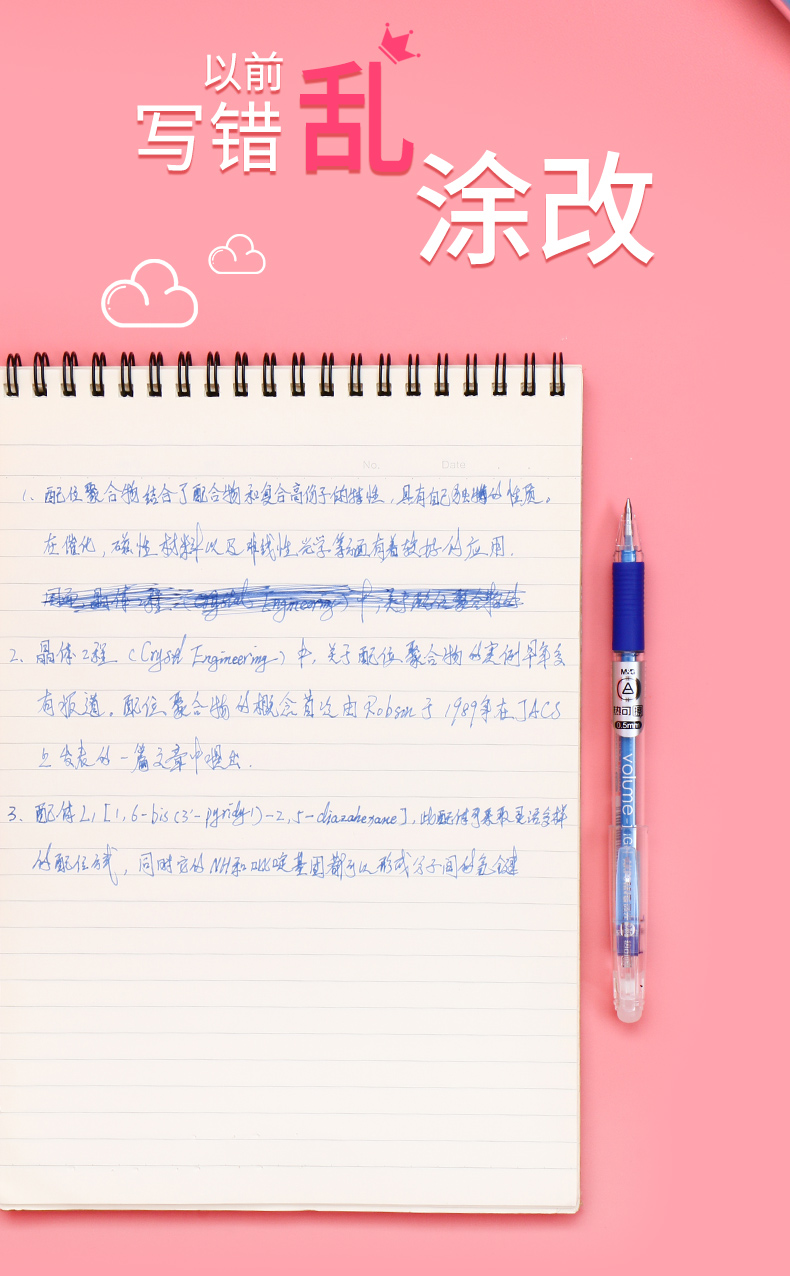 以前
写错乱
涂改
No. Date
1. 配位聚合物结合了配合物和复合高分子的特性，具有自己独特的性质。
在催化，磁性材料以及非线性光学等方面有着较好的应用.
2. 晶体工程 (Crystal Engineering) 中，关于配位聚合物的实例早年多
有报道。配位聚合物的概念首次由Robson于1989年在JACS
上发表的一篇文章中提出.
3. 配体L1 [1,6-bis(3'-pyridyl)-2,5-diazahexane], 此配体可采取灵活多样
的配位方式，同时它的NH和吡啶基团都可以形成分子间的氢键
M&G
热可擦
0.5mm
volume